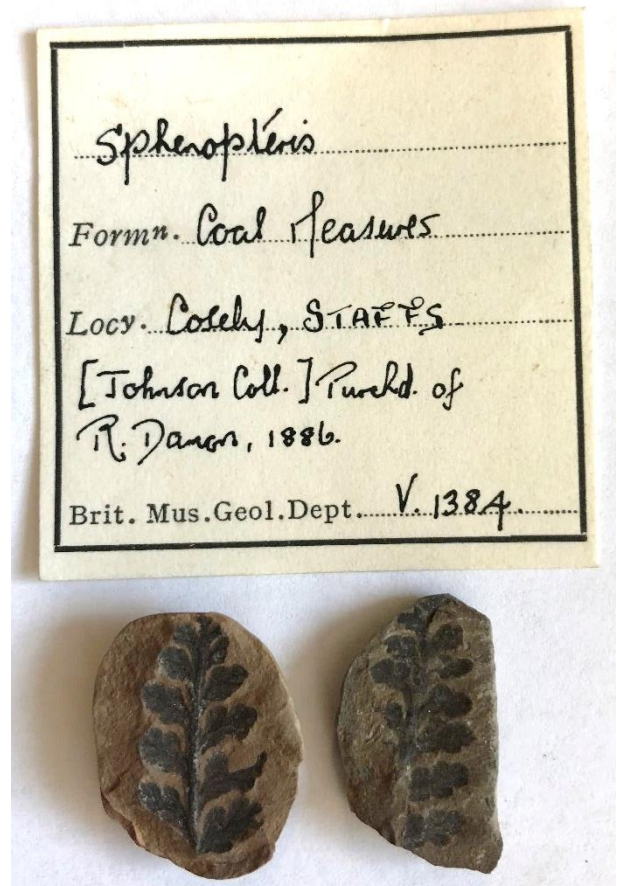 Sphenopteris
Formn. Coal Measures
Locy. Cosely, STAFFS
[Johnson Coll.] Purchd. of
R. Damon, 1886.
Brit. Mus. Geol. Dept. V. 1384.